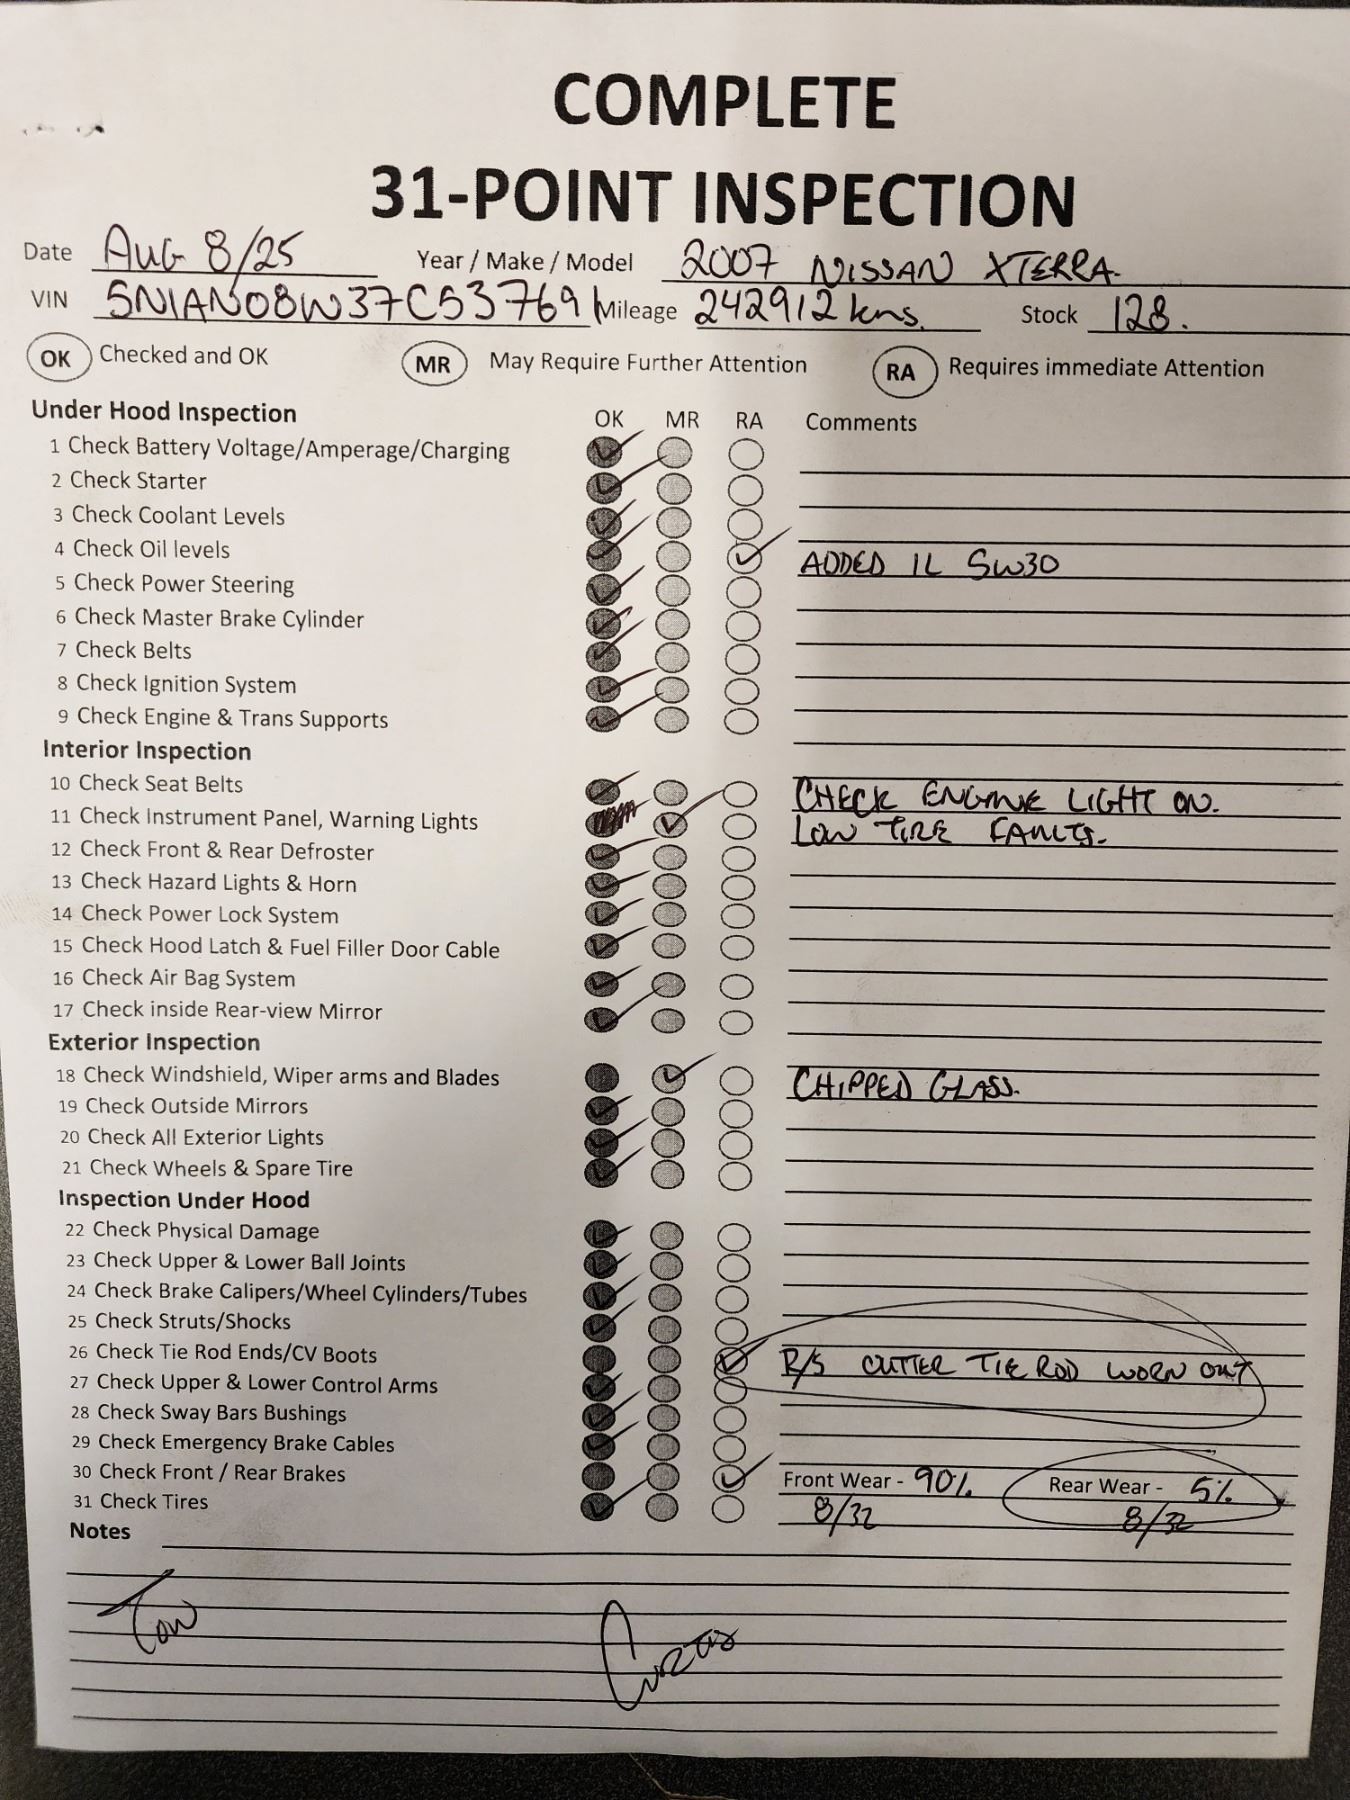 COMPLETE
31-POINT INSPECTION
Date AUG 8/25 Year / Make / Model 2007 NISSAN XTERRA.
VIN 5N1AN08W37C537691 Mileage 242912 kms. Stock 128.
OK Checked and OK MR May Require Further Attention RA Requires immediate Attention
Under Hood Inspection OK MR RA Comments
1 Check Battery Voltage/Amperage/Charging
2 Check Starter
3 Check Coolant Levels
4 Check Oil levels ADDED 1L 5W30
5 Check Power Steering
6 Check Master Brake Cylinder
7 Check Belts
8 Check Ignition System
9 Check Engine & Trans Supports
Interior Inspection
10 Check Seat Belts CHECK ENGINE LIGHT ON.
11 Check Instrument Panel, Warning Lights LOW TIRE FAULTS.
12 Check Front & Rear Defroster
13 Check Hazard Lights & Horn
14 Check Power Lock System
15 Check Hood Latch & Fuel Filler Door Cable
16 Check Air Bag System
17 Check inside Rear-view Mirror
Exterior Inspection
18 Check Windshield, Wiper arms and Blades CHIPPED GLASS.
19 Check Outside Mirrors
20 Check All Exterior Lights
21 Check Wheels & Spare Tire
Inspection Under Hood
22 Check Physical Damage
23 Check Upper & Lower Ball Joints
24 Check Brake Calipers/Wheel Cylinders/Tubes
25 Check Struts/Shocks
26 Check Tie Rod Ends/CV Boots R/S OUTTER TIE ROD WORN OUT
27 Check Upper & Lower Control Arms
28 Check Sway Bars Bushings
29 Check Emergency Brake Cables
30 Check Front / Rear Brakes Front Wear - 90% Rear Wear - 5%
31 Check Tires 8/32 8/32
Notes
Curtis